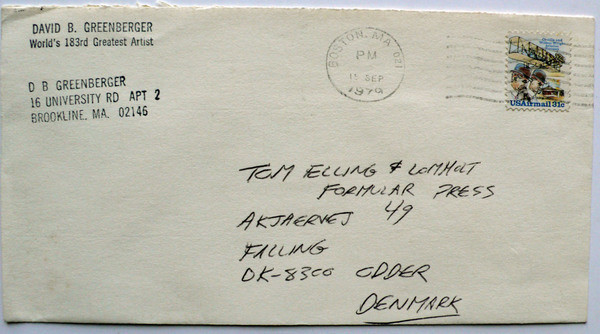 DAVID B. GREENBERGER
World's 183rd Greatest Artist
D B GREENBERGER
16 UNIVERSITY RD APT 2
BROOKLINE, MA. 02146
BOSTON, MA 021
PM
15 SEP
1979
USAirmail 31c
TOM ELLING & LOMHOLT
FORMULAR PRESS
AKJAERVEJ 49
FALLING
DK-8300 ODDER
DENMARK